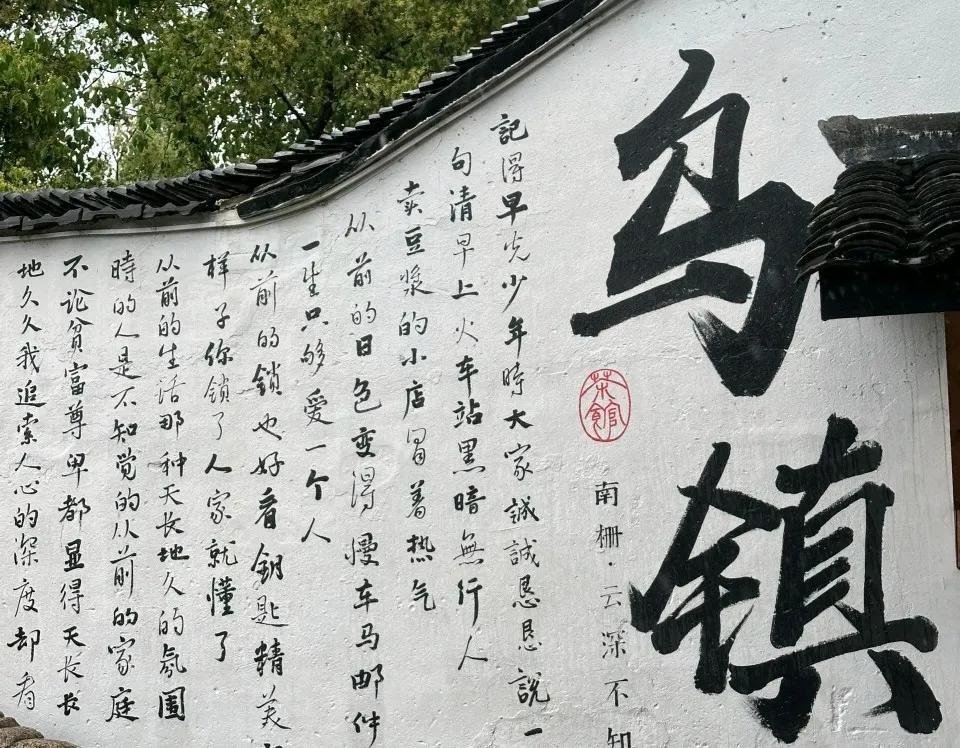 乌镇
茶館
南栅·云深不知
記得早先少年時大家誠誠恳恳説一
句清早上火车站黑暗無行人
卖豆漿的小店冒着热气
从前的日色变得慢车马邮件
一生只够爱一个人
从前的鎖也好看钥匙精美
样子你鎖了人家就懂了
从前的生活那种天长地久的氛围
時的人是不知觉的从前的家庭
不论貧富尊卑都显得天长长
地久久我追索人心的深度却看